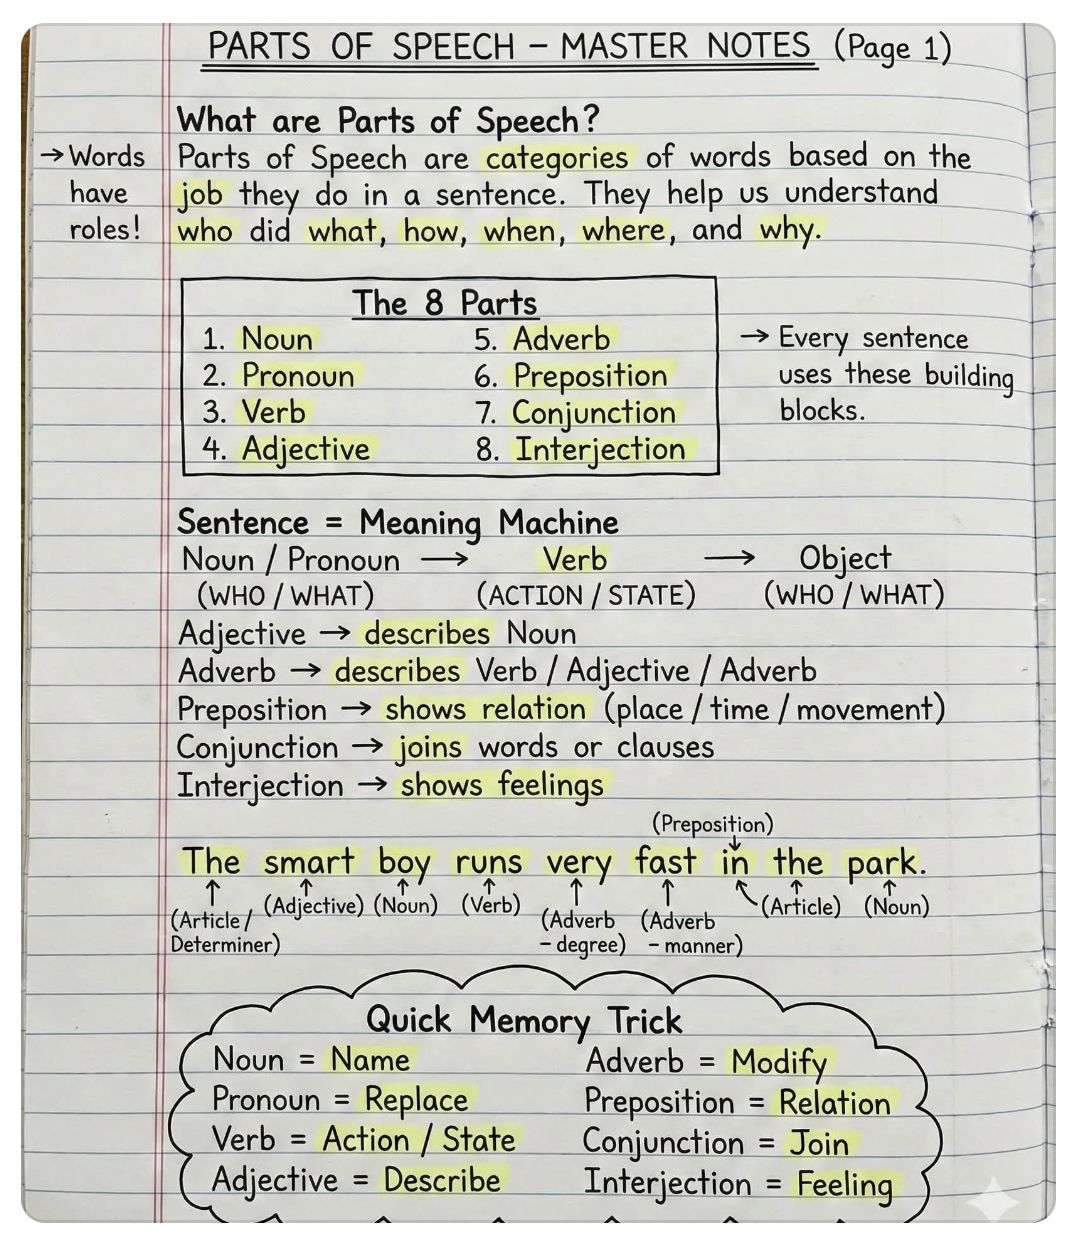 PARTS OF SPEECH – MASTER NOTES (Page 1)
What are Parts of Speech?
→ Words have roles!
Parts of Speech are categories of words based on the
job they do in a sentence. They help us understand
who did what, how, when, where, and why.
The 8 Parts
1. Noun
2. Pronoun
3. Verb
4. Adjective
5. Adverb
6. Preposition
7. Conjunction
8. Interjection
→ Every sentence
uses these building
blocks.
Sentence = Meaning Machine
Noun / Pronoun → Verb → Object
(WHO / WHAT) (ACTION / STATE) (WHO / WHAT)
Adjective → describes Noun
Adverb → describes Verb / Adjective / Adverb
Preposition → shows relation (place / time / movement)
Conjunction → joins words or clauses
Interjection → shows feelings
(Preposition)
The smart boy runs very fast in the park.
(Article / Determiner) (Adjective) (Noun) (Verb) (Adverb – degree) (Adverb – manner) (Article) (Noun)
Quick Memory Trick
Noun = Name
Pronoun = Replace
Verb = Action / State
Adjective = Describe
Adverb = Modify
Preposition = Relation
Conjunction = Join
Interjection = Feeling